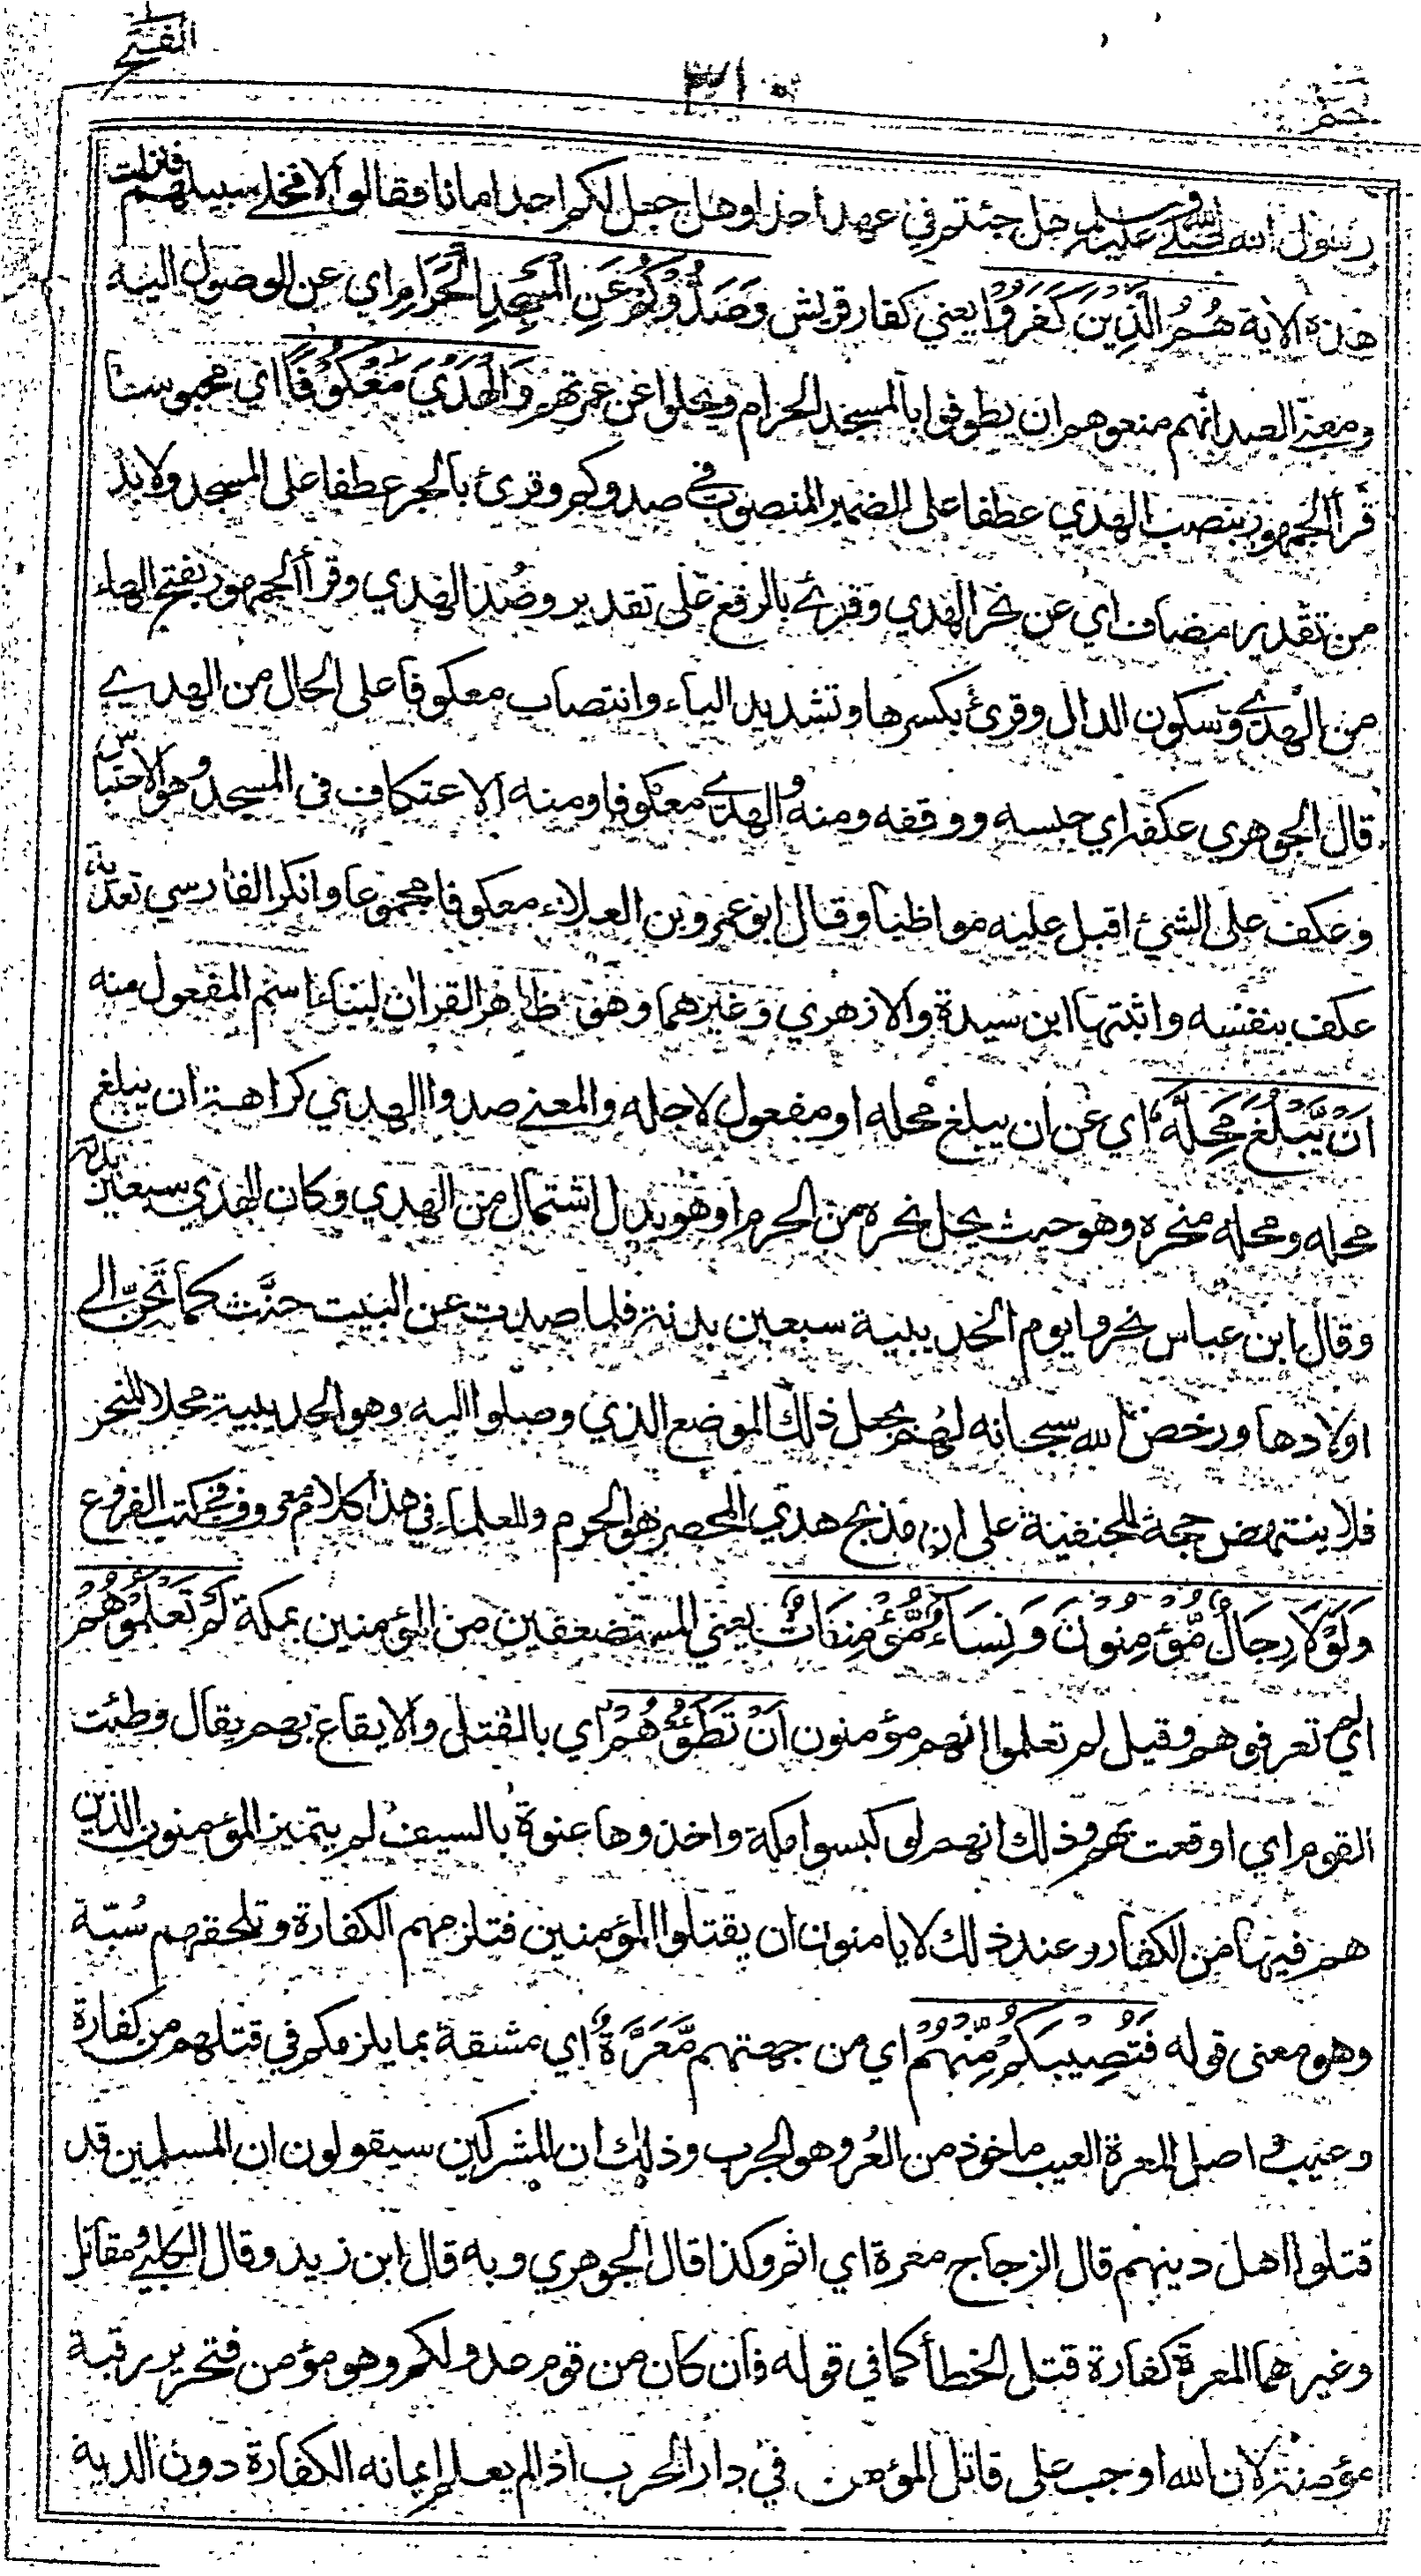 الفتح
٣١٠
حٰم
رسول الله صلى الله عليه وسلم هل جئتم في عهد احد او هل جعل لكم احد امانا فقالوا لا فخلى سبيلهم فنزلت
هذه الآية هُمُ الَّذِينَ كَفَرُوا يعني كفار قريش وَصَدُّوكُمْ عَنِ الْمَسْجِدِ الْحَرَامِ اي عن الوصول اليه
ومعنى الصد انهم منعوهم ان يطوفوا بالمسجد الحرام ويحلوا عن عمرتهم وَالْهَدْيَ مَعْكُوفًا اي محبوسا
قرأ الجمهور بنصب الهدي عطفا على الضمير المنصوب في صدوكم وقرئ بالجر عطفا على المسجد ولا بد
من تقدير مضاف اي عن نحر الهدي وقرئ بالرفع على تقدير وصُدّ الهدي وقرأ الجمهور بفتح الهاء
من الهدي وسكون الدال وقرئ بكسرها وتشديد الياء وانتصاب معكوفا على الحال من الهدي
قال الجوهري عكفه اي حبسه ووقفه ومنه والهدي معكوفا ومنه الاعتكاف في المسجد وهو الاحتباس
وعكف على الشئ اقبل عليه مواظبا وقال ابو عمرو بن العلاء معكوفا مجموعا وانكر الفارسي تعدية
عكف بنفسه واثبتها ابن سيدة والازهري وغيرهما وهو ظاهر القران لبناء اسم المفعول منه
اَنْ يَّبْلُغَ مَحِلَّهٗ اي عن ان يبلغ محله او مفعول لاجله والمعنى صدوا الهدي كراهة ان يبلغ
محله ومحله منحره وهو حيث يحل نحره من الحرم او هو بدل اشتمال من الهدي وكان الهدي سبعين بدنة
وقال ابن عباس نحروا يوم الحديبية سبعين بدنة فلما صدت عن البيت حنَّت كما تحنّ الى
اولادها ورخص الله سبحانه لهم بجعل ذلك الموضع الذي وصلوا اليه وهو الحديبية محلا للنحر
فلا ينتهض حجة للحنفية على ان مذبح هدي المحصر هو الحرم وللعلماء في هذا كلام معروف في كتب الفروع
وَلَوْلَا رِجَالٌ مُّؤْمِنُوْنَ وَنِسَاءٌ مُّؤْمِنَاتٌ يعني المستضعفين من المؤمنين بمكة لَّمْ تَعْلَمُوْهُمْ
اي لم تعرفوهم وقيل لم تعلموا انهم مؤمنون اَنْ تَطَؤُهُمْ اي بالقتل والايقاع بهم يقال وطئت
القوم اي اوقعت بهم وذلك انهم لو كبسوا مكة واخذوها عنوة بالسيف لم يتميز المؤمنون الذين
هم فيها من الكفار وعند ذلك لا يامنون ان يقتلوا المؤمنين فتلزمهم الكفارة وتلحقهم سُبّة
وهو معنى قوله فَتُصِيْبَكُمْ مِّنْهُمْ اي من جهتهم مَّعَرَّةٌ اي مشقة بما يلزمكم في قتلهم من كفارة
وعيب واصل المعرة العيب ماخوذ من العُر وهو الجرب وذلك ان المشركين سيقولون ان المسلمين قد
قتلوا اهل دينهم قال الزجاج معرة اي اثم وكذا قال الجوهري وبه قال ابن زيد وقال الكلبي ومقاتل
وغيرهما المعرة كفارة قتل الخطأ كما في قوله فان كان من قوم عدو لكم وهو مؤمن فتحرير رقبة
مؤمنة لان الله اوجب على قاتل المؤمن في دار الحرب اذا لم يعلم ايمانه الكفارة دون الدية